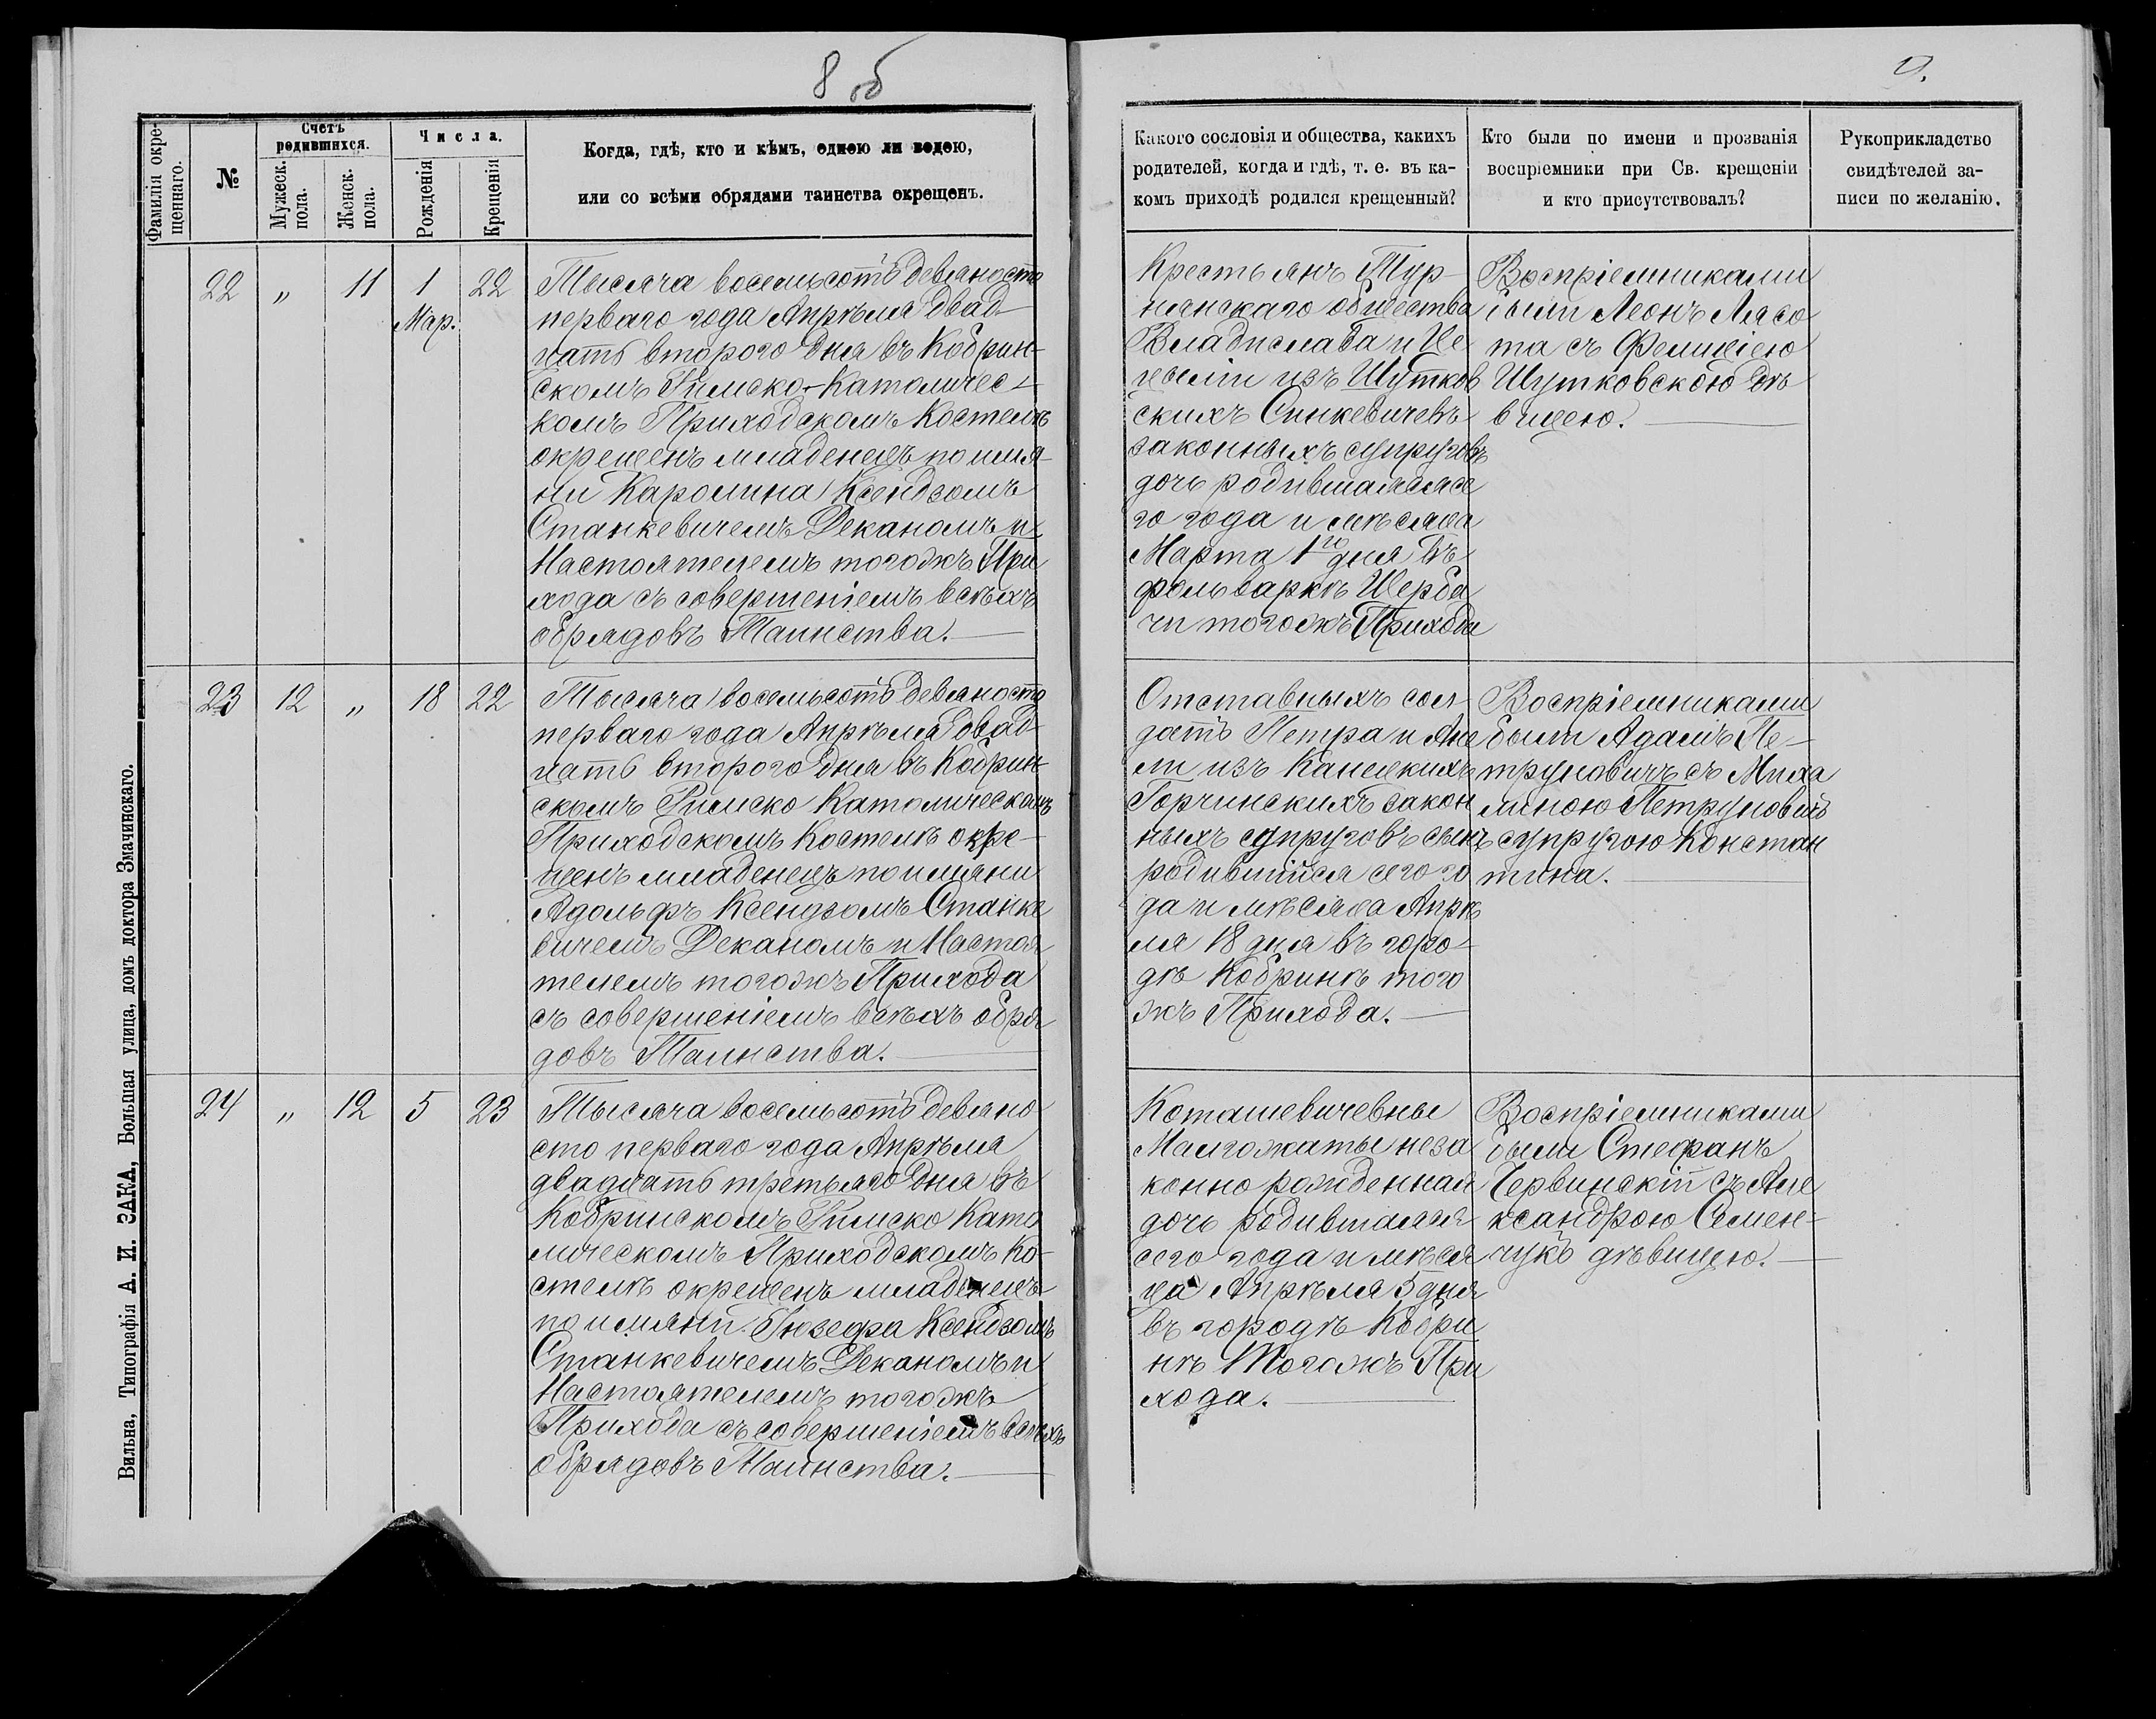 8 об
9.
Фамилія окре-
щеннаго.
№
Счетъ
родившихся.
Мужеск.
пола.
Женск.
пола.
Числа.
Рожденія
Крещенія
Когда, гдѣ, кто и кѣмъ, одною ли водою,
или со всѣми обрядами таинства окрещенъ.
Какого сословія и общества, какихъ
родителей, когда и гдѣ, т. е. въ ка-
комъ приходѣ родился крещенный?
Кто были по имени и прозванія
воспріемники при Св. крещеніи
и кто присутствовалъ?
Рукоприкладство
свидѣтелей за-
писи по желанію.
22 „ 11 1 22
Мар.
Тысяча восемьсотъ девяносто
перваго года Апрѣля двад-
цать второго дня въ Кобрин-
скомъ Римско-Католичес-
комъ Приходскомъ Костелѣ
окрещенъ младенецъ по имя-
ни Каролина Ксендзомъ
Станкевичемъ Деканомъ и
Настоятелемъ тогожъ При
хода съ совершеніемъ всѣхъ
обрядовъ Таинства.
Крестьянъ Тур-
нянскаго общества
Владислава и Це
цыліи изъ Шутков
скихъ Синкевичевъ
законныхъ супруговъ
дочь родившаяся се
го года и мѣсяца
Марта 1го дня въ
фольваркѣ Щерба
чи тогожъ Прихода
Воспріемниками
были Леонъ Лясо
та съ Фелиціею
Шутковскою дѣ
вицею.
23 12 „ 18 22
Тысяча восемьсотъ девяносто
перваго года Апрѣля двад-
цать второго дня въ Кобрин
скомъ Римско Католическомъ
Приходскомъ Костелѣ окре-
щенъ младенецъ по имяни
Адольфъ Ксендзомъ Станке
вичемъ Деканомъ и Настоя
телемъ тогожъ Прихода
съ совершеніемъ всѣхъ обря
довъ Таинства.
Отставныхъ сол-
датъ Петра и Анe
ли изъ Канецкихъ
Горчинскихъ закон
ныхъ супруговъ сынъ
родившійся сего го
да и мѣсяца Апрѣ
ля 18 дня въ горо-
дѣ Кобринѣ того
жъ Прихода.
Воспріемниками
были Адамъ Пе-
труповичъ съ Миха
линою Петруповичъ
супругою Констан
тина.
24 „ 12 5 23
Тысяча восемьсотъ девяно
сто перваго года Апрѣля
двадцать третьяго дня въ
Кобринскомъ Римско Като
лическомъ Приходскомъ Ко-
стелѣ окрещенъ младенецъ
по имяни Іозефа Ксендзомъ
Станкевичемъ Деканомъ и
Настоятелемъ тогожъ
Прихода съ совершеніемъ всѣхъ
обрядовъ Таинства.
Коташевичевны
Малгожаты неза
конно рожденная
дочь родившаяся
сего года и мѣся
ца Апрѣля 5 дня
въ городѣ Кобри
нѣ Тогожъ При
хода.
Воспріемниками
были Стефанъ
Червинскій съ Але
ксандрою Семен-
чукъ дѣвицею.
Вильна, Типографія А. И. ЗАКА, Большая улица, домъ доктора Змачинскаго.